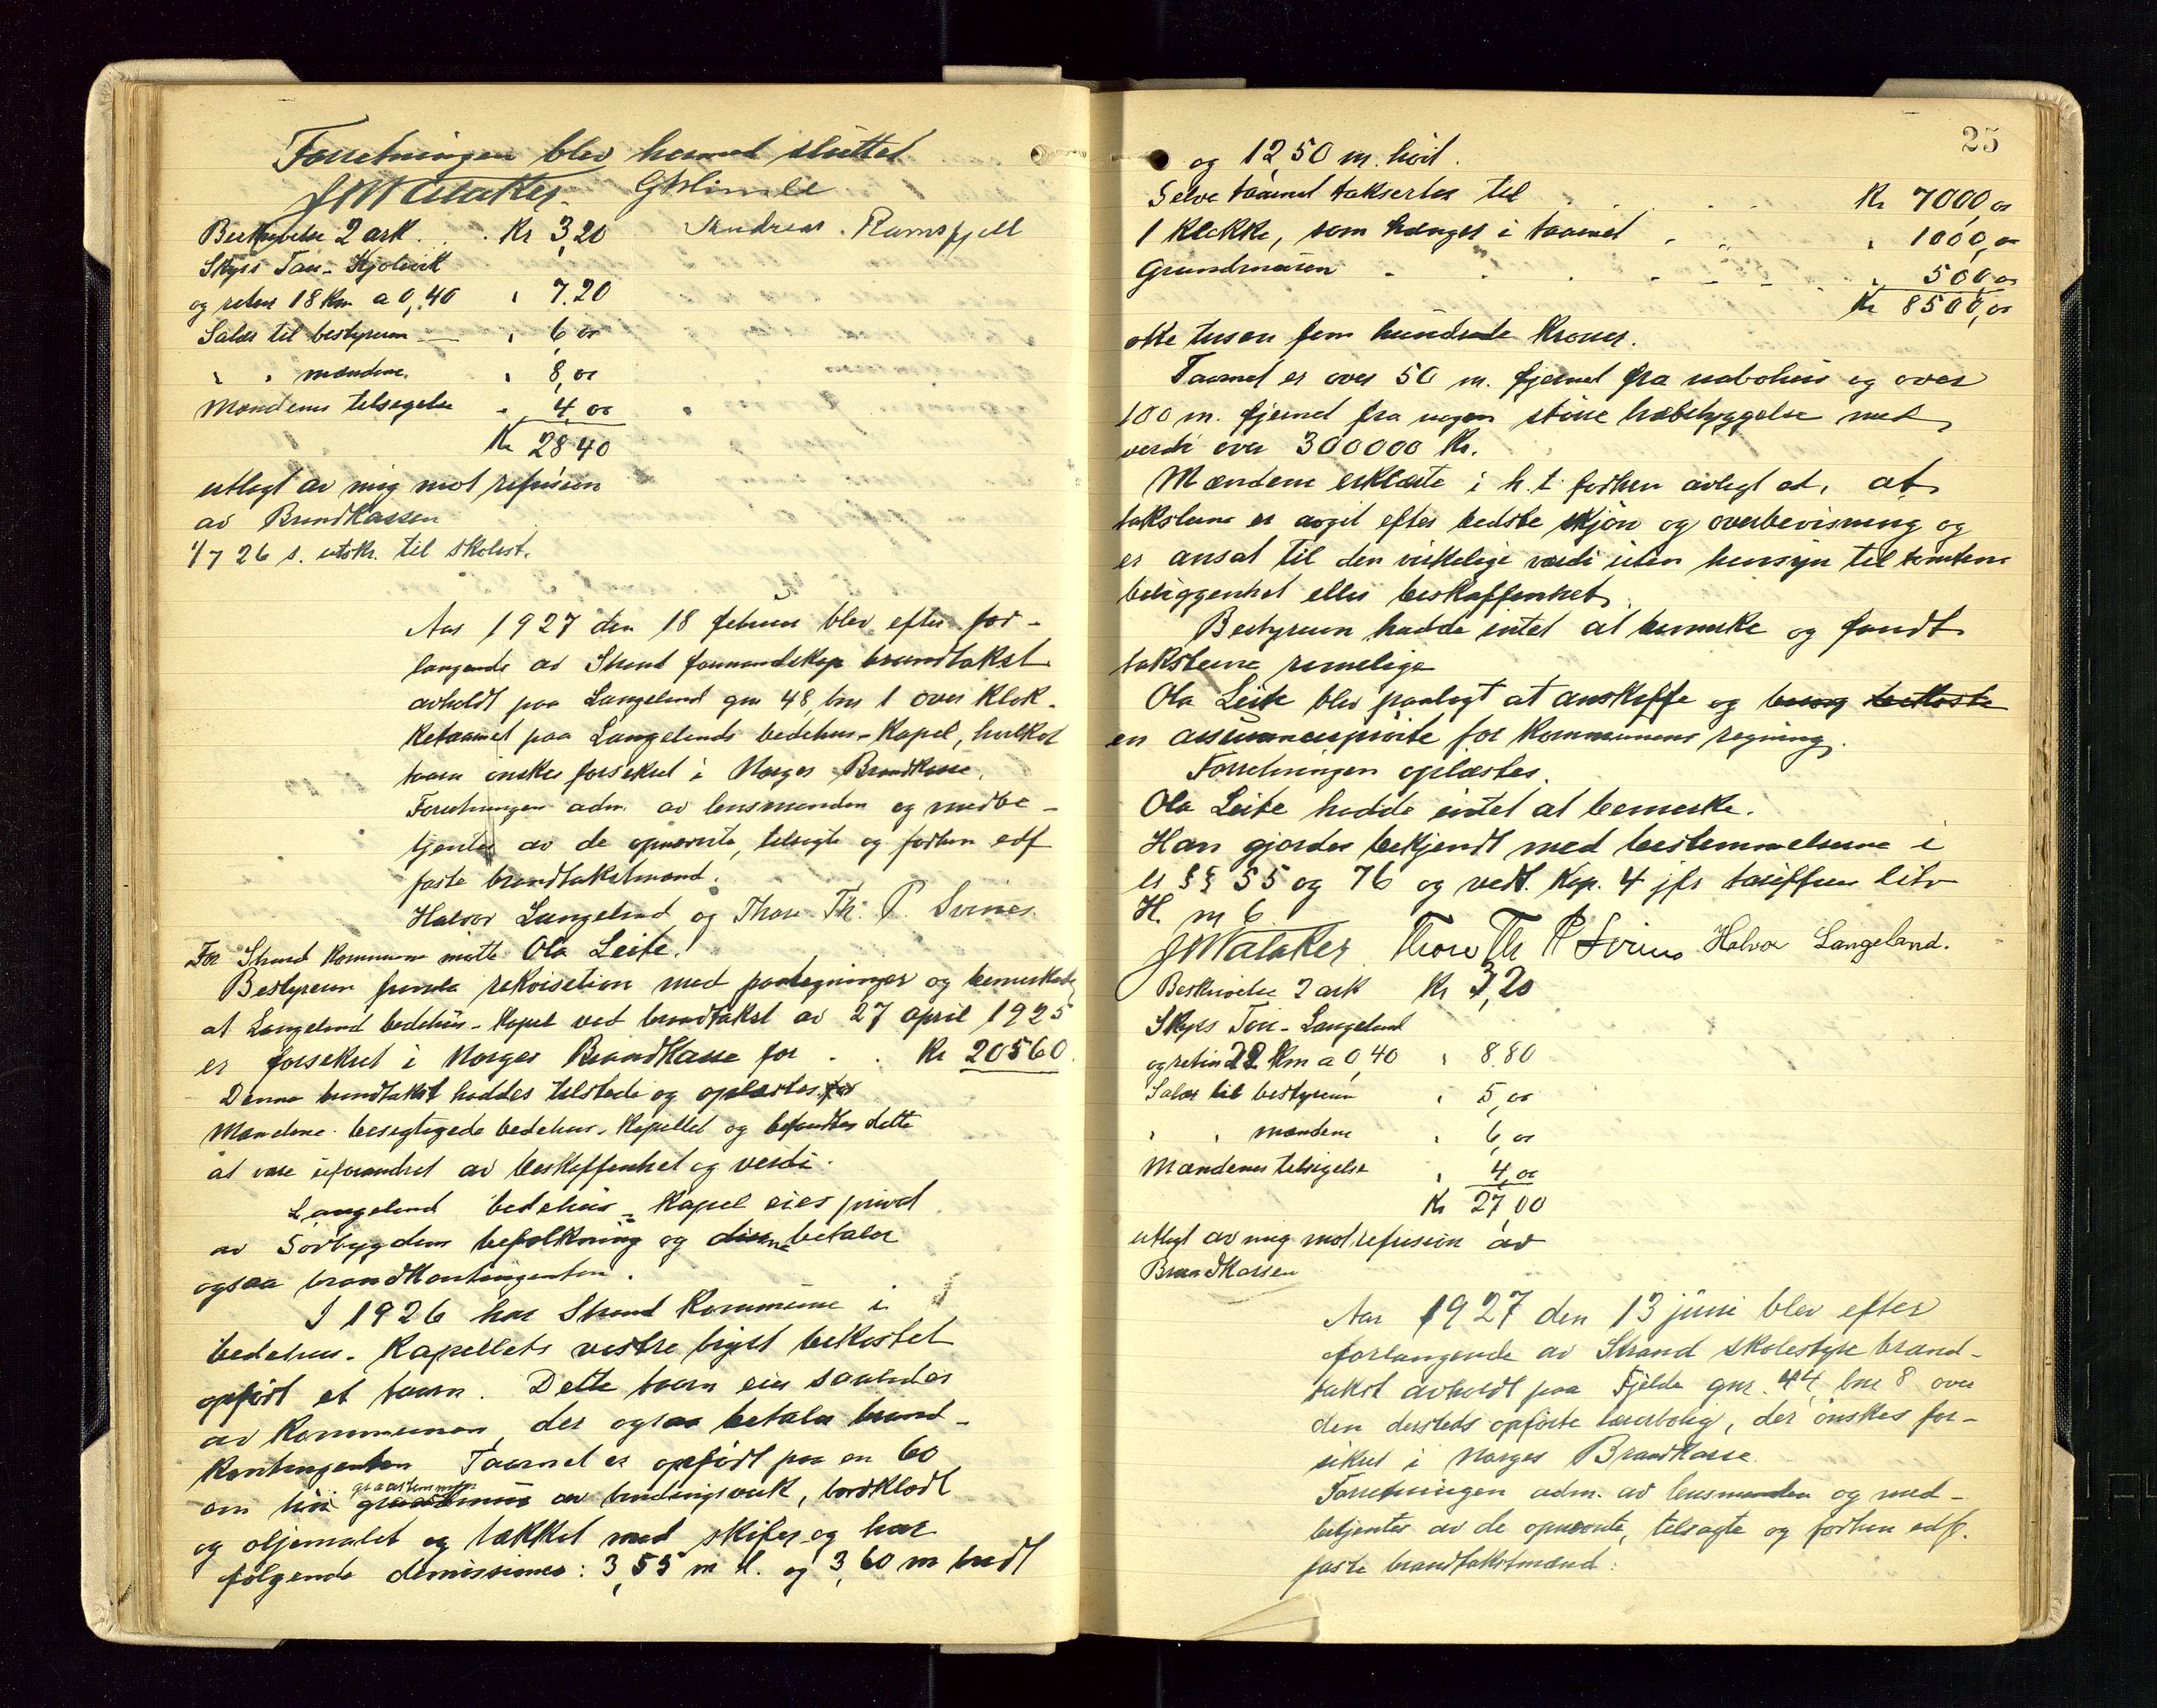 Forretningen blev hermed sluttet
JWataker. GHlimle
Andreas Ramsfjell
Beskrivelse 2 ark . . . Kr 3,20
Skyss Tau - Kjølevik
og retur 18 Km a 0,40 " 7.20
Salær til bestyreren " 6 oo
" " mændene. " 8,oo
Mændenes tilsigelse " 4 oo
Kr 28,40
utlagt av mig mot refusion
av Brandkassen
1/7 26 s. utskr. til skolest.
Aar 1927 den 18 februar blev efter for-
langende av Strand formandskap brandtakst
avholdt paa Langeland gnr 48, bnr 1 over klok-
ketaarnet paa Langelands bedehus-kapel, hvilket
taarn ønskes forsikret i Norges Brandkasse.
Forretningen adm. av lensmanden og medbe-
tjentes av de opnævnte, tilsagte og forhen edf
faste brandtakstmænd.
Halvor Langeland og Thore Th. P. Svines.
For Strand Kommune møtte Ola Leite.
Bestyreren fremla rekvisition med paategninger og bemerkede
at Langeland bedehus-kapel ved brandtakst av 27 april 1925
er forsikret i Norges Brandkasse for . . Kr 20560.
Denne brandtakst haddes tilstede og oplæstes for
Mændene besigtigede bedehus-kapellet og befandtes dette
at være uforandret av beskaffenhet og verdi.
Langeland bedehus-kapel eies privat
av Sørbygdens befolkning og denne betaler
ogsaa brandkontingenten.
I 1926 har Strand kommune i
bedehus-kapellets vestre bygt bekostet
opført et taarn. Dette taarn eies saaledes
av kommunen, der ogsaa betaler brand-
kontingenten Taarnet er opført paa en 60
cm høi graastensmur av bindingsverk, bordklædt
og oljemalet og tækket med skifer og har
følgende dimissioner: 3,55 m l. og 3,60 m bredt
25
og 12,50 m. høit.
Selve taarnet takseres til . . . . Kr 7000,oo
1 klokke, som hænges i taarnet " 1000,oo
Grundmuren " 500,oo
Kr 8500,oo
otte tusen fem hundrede kroner.
Taarnet er over 50 m. fjernet fra nabohus og over
100 m. fjernet fra nogen større træbebyggelse med
verdi over 300000 Kr.
Mændene erklærte i h. t. forhen avlagt ed, at
taksterne er avgit efter bedste skjøn og overbevisning og
er ansat til den virkelige værdi uten hensyn til tomtens
beliggenhet eller beskaffenhet.
Bestyreren hadde intet at bemerke og fandt
taksterne rimelige
Ola Leite blev paalagt at anskaffe og besørg bekoste
en assuranceprøite for kommunens regning.
Forretningen oplæstes.
Ola Leite hadde intet at bemerke.
Han gjordes bekjendt med bestemmelserne i
er §§ 55 og 76 og vedt. Kap. 4 jfr tariffen litr
H. m 6.
JWataker. Thore Th P Svines Halvor Langeland.
Beskrivelse 2 ark Kr 3,20
Skyss Tau - Langeland
og retur 22 km a 0,40 " 8.80
Salær til bestyreren " 5,oo
" " mændene " 6,oo
Mændenes tilsigelse " 4,oo
Kr 27,00
utlagt av mig mot refusion av
Brandkassen
Aar 1927 den 13 juni blev efter
forlangende av Strand skolestyre brand-
takst avholdt paa Fjelde gnr. 44 bnr 8 over
den dersteds opførte lærerbolig, der ønskes for-
sikret i Norges Brandkasse.
Forretningen adm. av lensmanden og med-
betjentes av de opnævnte, tilsagte og forhen edf.
faste brandtakstmænd: